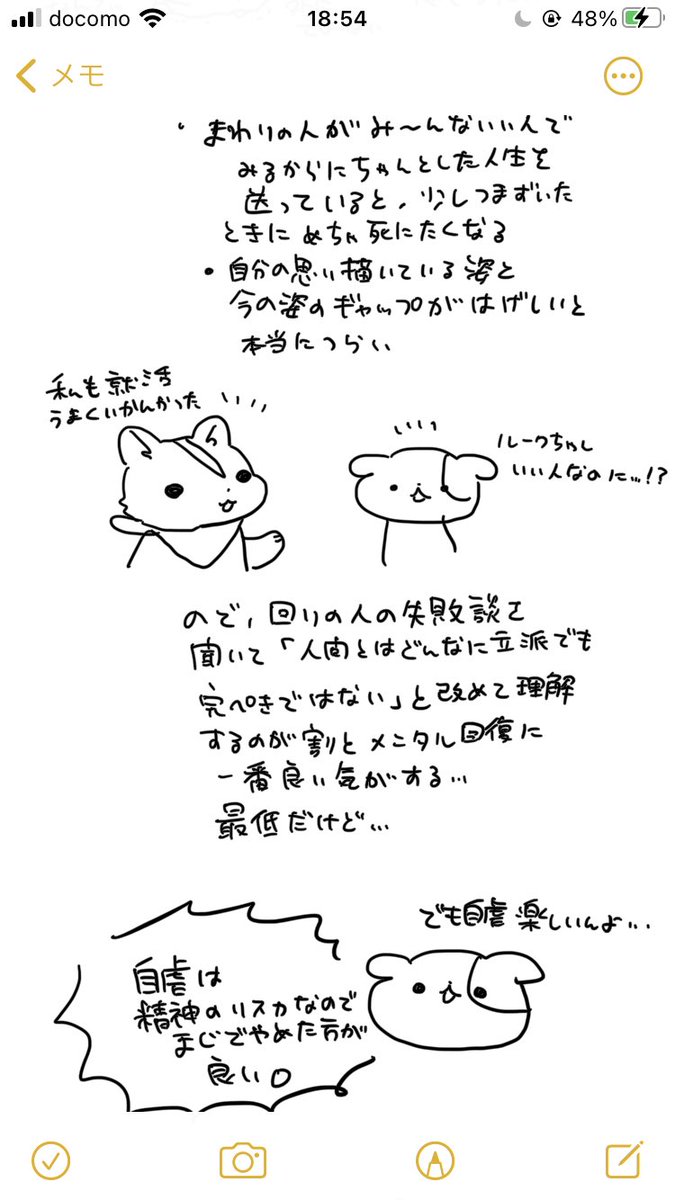 docomo
18:54
48%
メモ
・まわりの人がみ〜んないい人で
みるからにちゃんとした人生を
送っていると、少しつまずいた
ときに めちゃ死にたくなる
・自分の思い描いている姿と
今の姿のギャップがはげしいと
本当につらい
私も就活
うまくいかんかった
ルークちゃん
いい人なのに…!?
ので、回りの人の失敗談を
聞いて「人間とはどんなに立派でも
完ぺきではない」と改めて理解
するのが割とメンタル回復に
一番良い気がする…
最低だけど…
でも自虐楽しいんよ…
自虐は
精神のリスカなので
まじでやめた方が
良い。